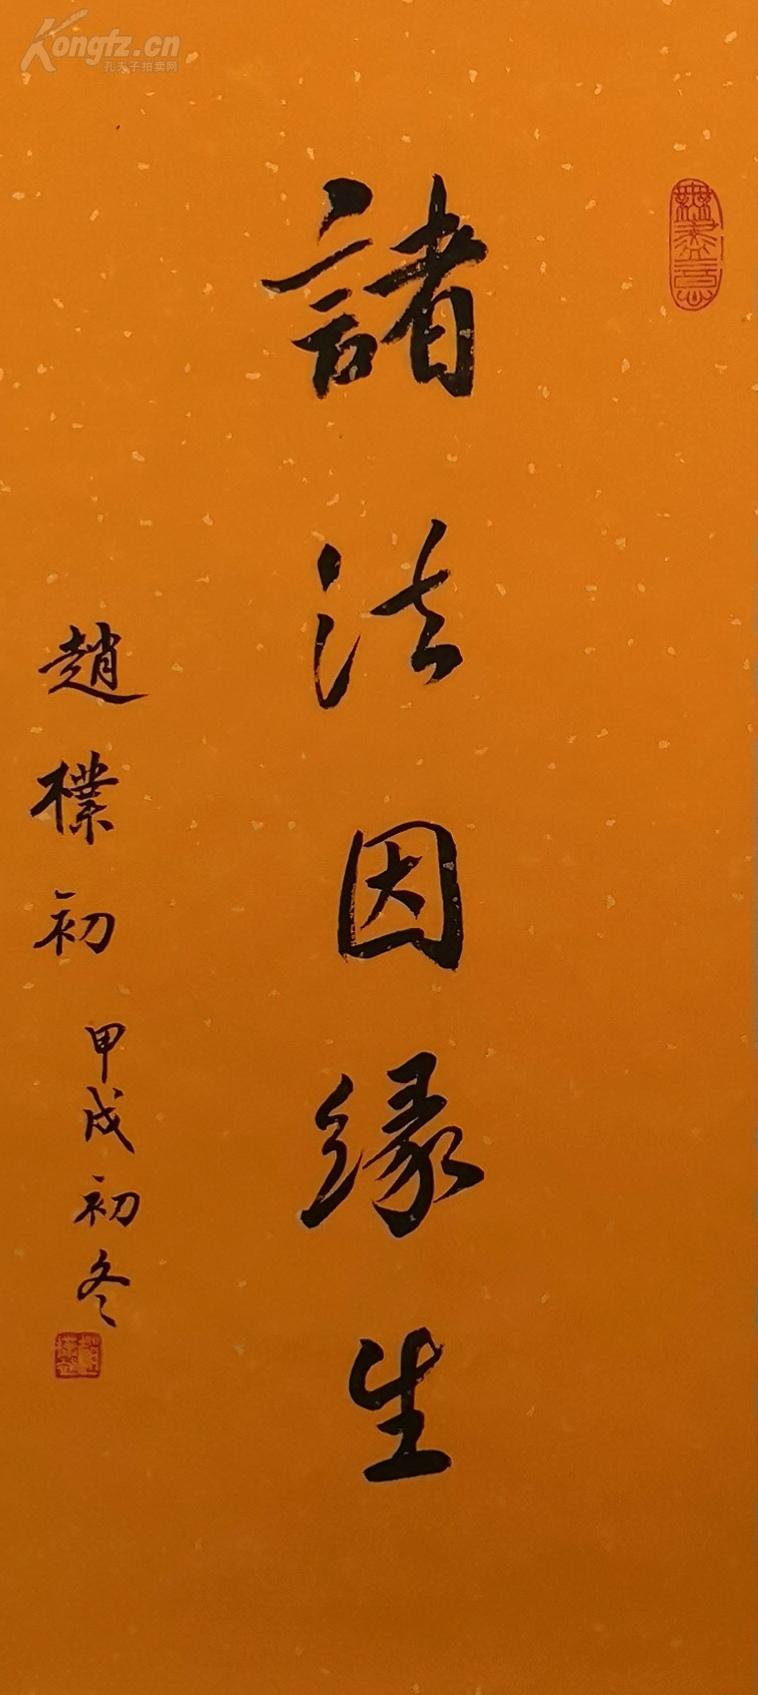 Kongfz.cn
孔夫子拍卖网
諸法因緣生
趙樸初
甲戌初冬